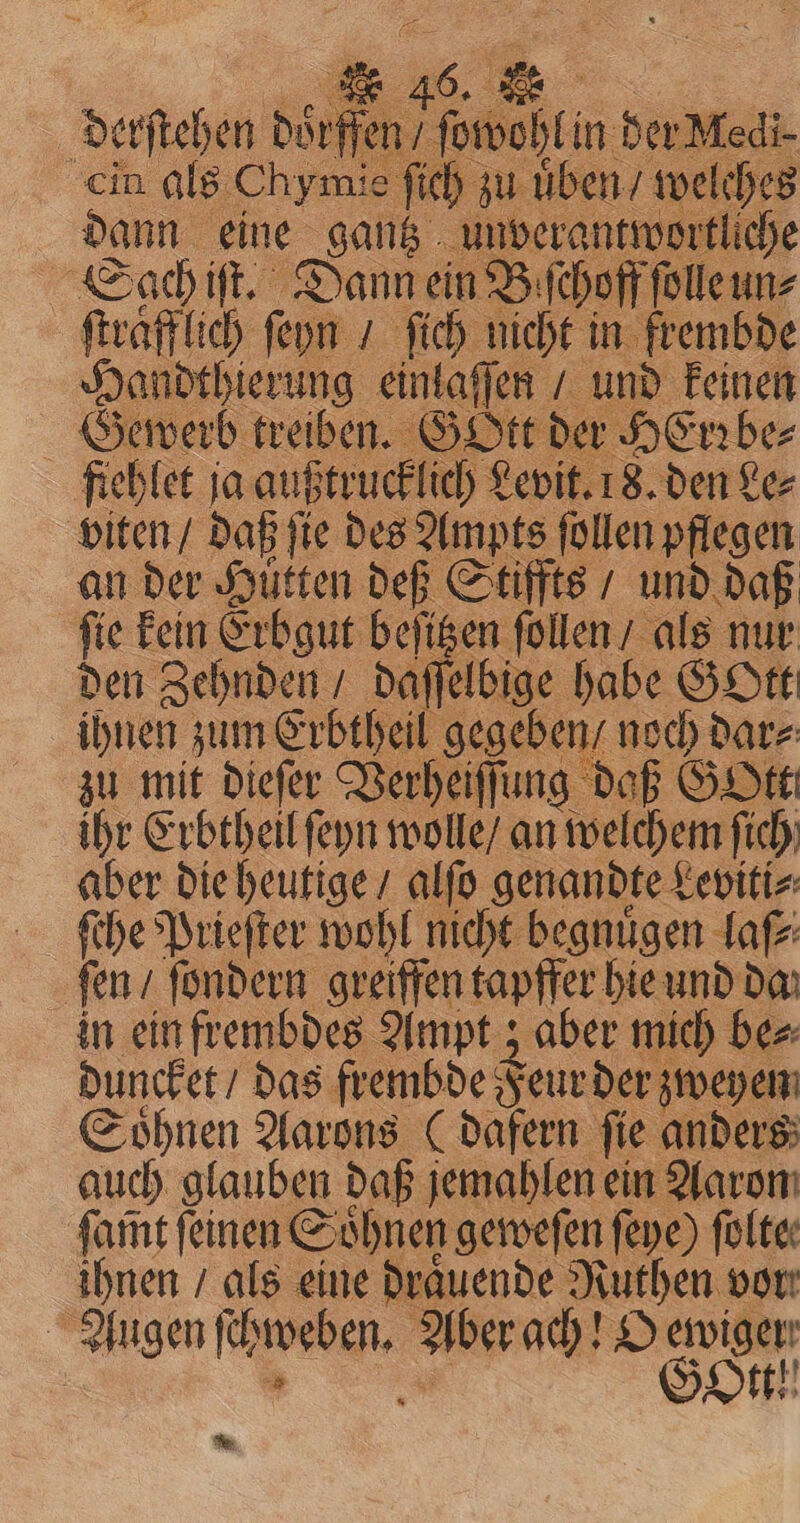 46.
derſtehen doͤrffen / ſowohl in der Medi-
cin als Chymie ſich zu uͤben / welches
dann eine gantz unverantwortliche
Sach iſt. Dann ein Biſchoff ſolle un⸗
ſtraͤfflich ſeyn / ſich nicht in frembde
Handthierung einlaſſen / und keinen
Gewerb treiben. GOtt der HErꝛ be⸗
fiehlet ja außtrucklich Levit. 18. den Le⸗
viten / daß ſie des Ampts ſollen pflegen
an der Huͤtten deß Stiffts / und daß
ſie kein Erbgut beſitzen ſollen / als nur
den Zehnden / daſſelbige habe GOtt
ihnen zum Erbtheil gegeben / noch dar⸗
zu mit dieſer Verheiſſung daß GOtt
ihr Erbtheil ſeyn wolle / an welchem ſich
aber die heutige / alſo genandte Leviti⸗
ſche Prieſter wohl nicht begnuͤgen laſ⸗
ſen / ſondern greiffen tapffer hie und da
in ein frembdes Ampt ; aber mich be⸗
duncket / das frembde Feur der zweyen
Soͤhnen Aarons ( dafern ſie anders
auch glauben daß jemahlen ein Aaron
ſam̃t ſeinen Soͤhnen geweſen ſeye) ſolte
ihnen / als eine draͤuende Ruthen vor
Augen ſchweben. Aber ach ! O ewiger
GOtt!